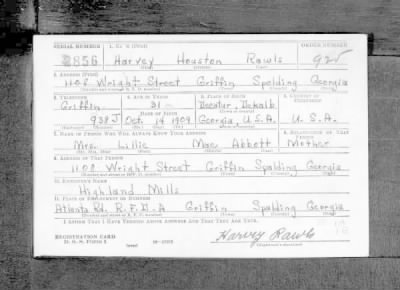 SERIAL NUMBER 1. NAME (Print) ORDER NUMBER
2856 Harvey Houston Rawls 925
2. ADDRESS (Print)
1108 Wright Street Griffin Spalding Georgia
3. TELEPHONE 4. AGE IN YEARS 5. PLACE OF BIRTH 6. COUNTRY OF CITIZENSHIP
Griffin 31 Decatur, Dekalb
DATE OF BIRTH
938J Oct. 14 1909 Georgia, U.S.A. U.S.A.
7. NAME OF PERSON WHO WILL ALWAYS KNOW YOUR ADDRESS 8. RELATIONSHIP OF THAT PERSON
Mrs. Lillie Mae Abbott Mother
9. ADDRESS OF THAT PERSON
1108 Wright Street Griffin Spalding Georgia
10. EMPLOYER'S NAME
Highland Mills
11. PLACE OF EMPLOYMENT OR BUSINESS
Atlanta Rd. R.F.D. A Griffin Spalding Georgia
I AFFIRM THAT I HAVE VERIFIED ABOVE ANSWERS AND THAT THEY ARE TRUE.
REGISTRATION CARD
D. S. S. FORM 1
Harvey Rawls